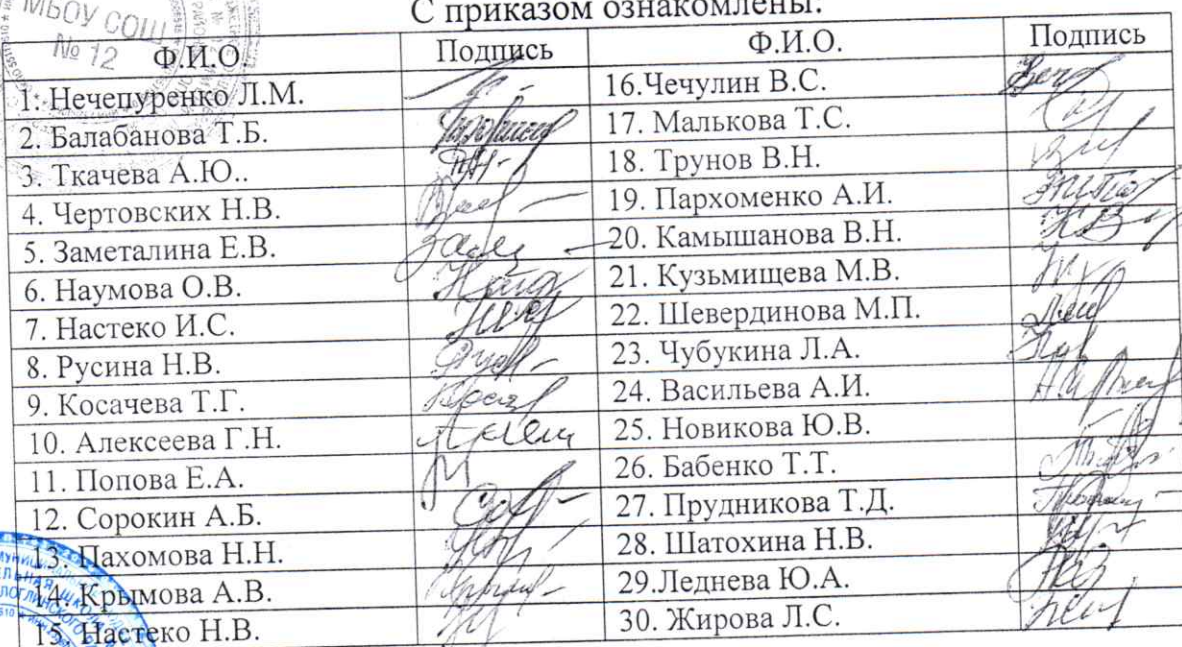 С приказом ознакомлены:
МБОУ СОШ
№ 12
Ф.И.О Подпись Ф.И.О. Подпись
1. Нечепуренко Л.М. 16.Чечулин В.С.
2. Балабанова Т.Б. 17. Малькова Т.С.
3. Ткачева А.Ю.. 18. Трунов В.Н.
4. Чертовских Н.В. 19. Пархоменко А.И.
5. Заметалина Е.В. 20. Камышанова В.Н.
6. Наумова О.В. 21. Кузьмищева М.В.
7. Настеко И.С. 22. Шевердинова М.П.
8. Русина Н.В. 23. Чубукина Л.А.
9. Косачева Т.Г. 24. Васильева А.И.
10. Алексеева Г.Н. 25. Новикова Ю.В.
11. Попова Е.А. 26. Бабенко Т.Т.
12. Сорокин А.Б. 27. Прудникова Т.Д.
13. Пахомова Н.Н. 28. Шатохина Н.В.
14. Крымова А.В. 29.Леднева Ю.А.
15. Настеко Н.В. 30. Жирова Л.С.